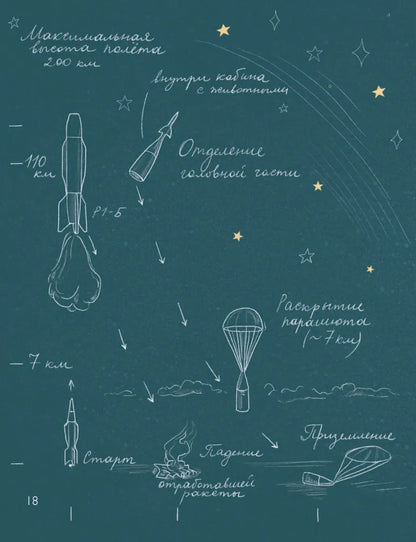 Максимальная
высота полёта
200 км
внутри кабина
с животными
110
км
Отделение
головной части
Р1-Б
Раскрытие
парашюта
(~7км)
7 км
Старт
Падение
отработавшей
ракеты
Приземление
18